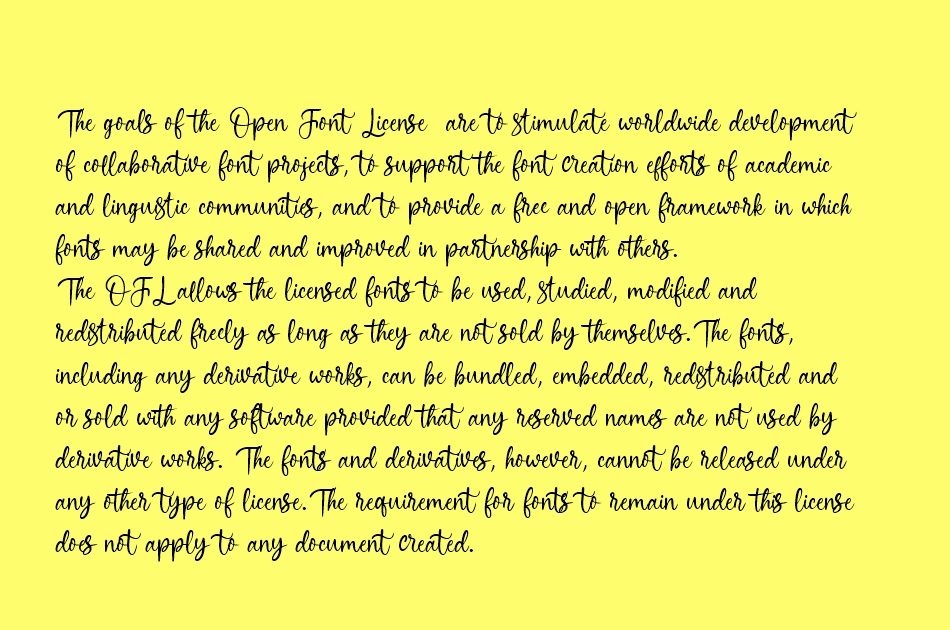 The goals of the Open Font License are to stimulate worldwide development
of collaborative font projects, to support the font creation efforts of academic
and linguistic communities, and to provide a free and open framework in which
fonts may be shared and improved in partnership with others.
The OFL allows the licensed fonts to be used, studied, modified and
redistributed freely as long as they are not sold by themselves. The fonts,
including any derivative works, can be bundled, embedded, redistributed and
or sold with any software provided that any reserved names are not used by
derivative works. The fonts and derivatives, however, cannot be released under
any other type of license. The requirement for fonts to remain under this license
does not apply to any document created.